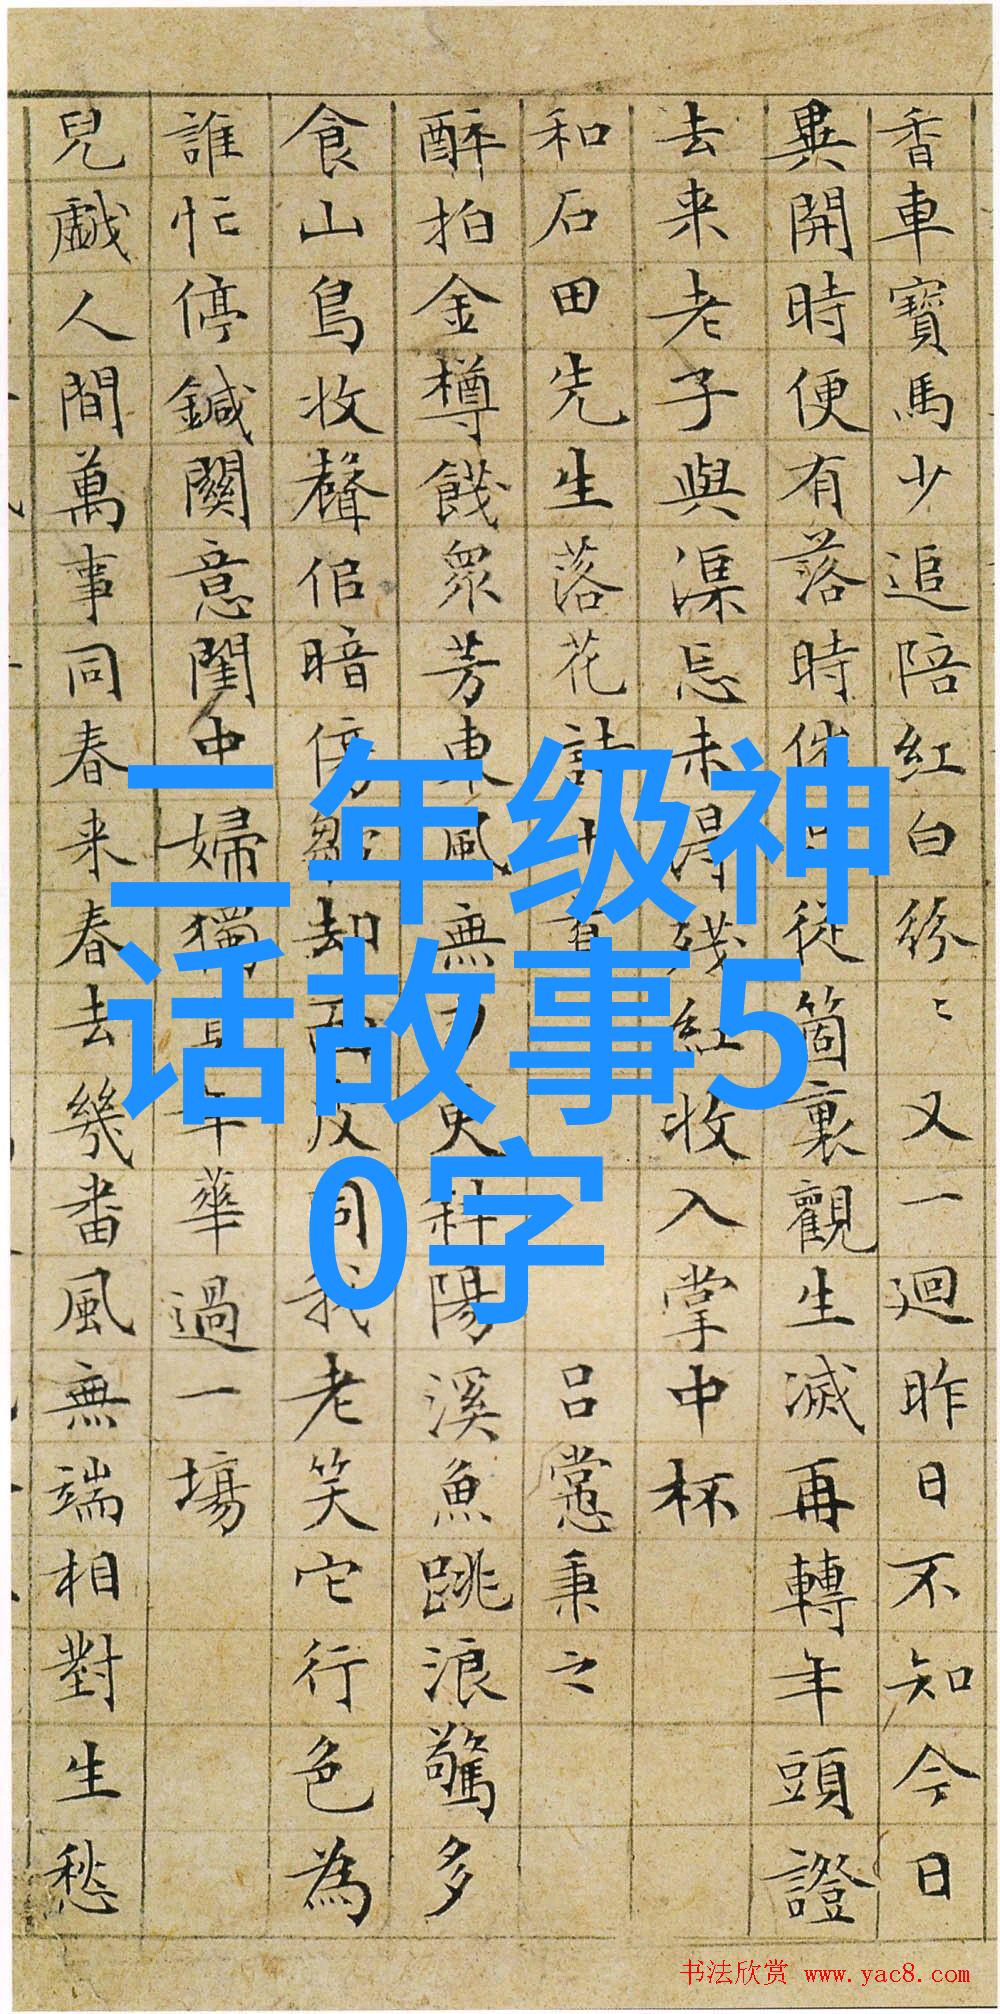 香車寶馬少追陪紅白紛〻又一迴昨日不知今日
異開時便有落時催從箇裏觀生滅再轉年頭證
去来老子與渠忘未得殘紅收入掌中杯
和石田先生落花詩十首 呂㦂秉之
醉拍金樽餞衆芳東風無力更斜陽溪魚跳浪驚多
食山鳥收聲倍暗傷皺却面皮同我老笑它行色為
誰忙停鍼關意閨中婦獨年華過一場
兒戲人間萬事同春来春去幾番風無端相對生愁
二年级神
话故事5
0字
书法欣赏 www.yac8.com